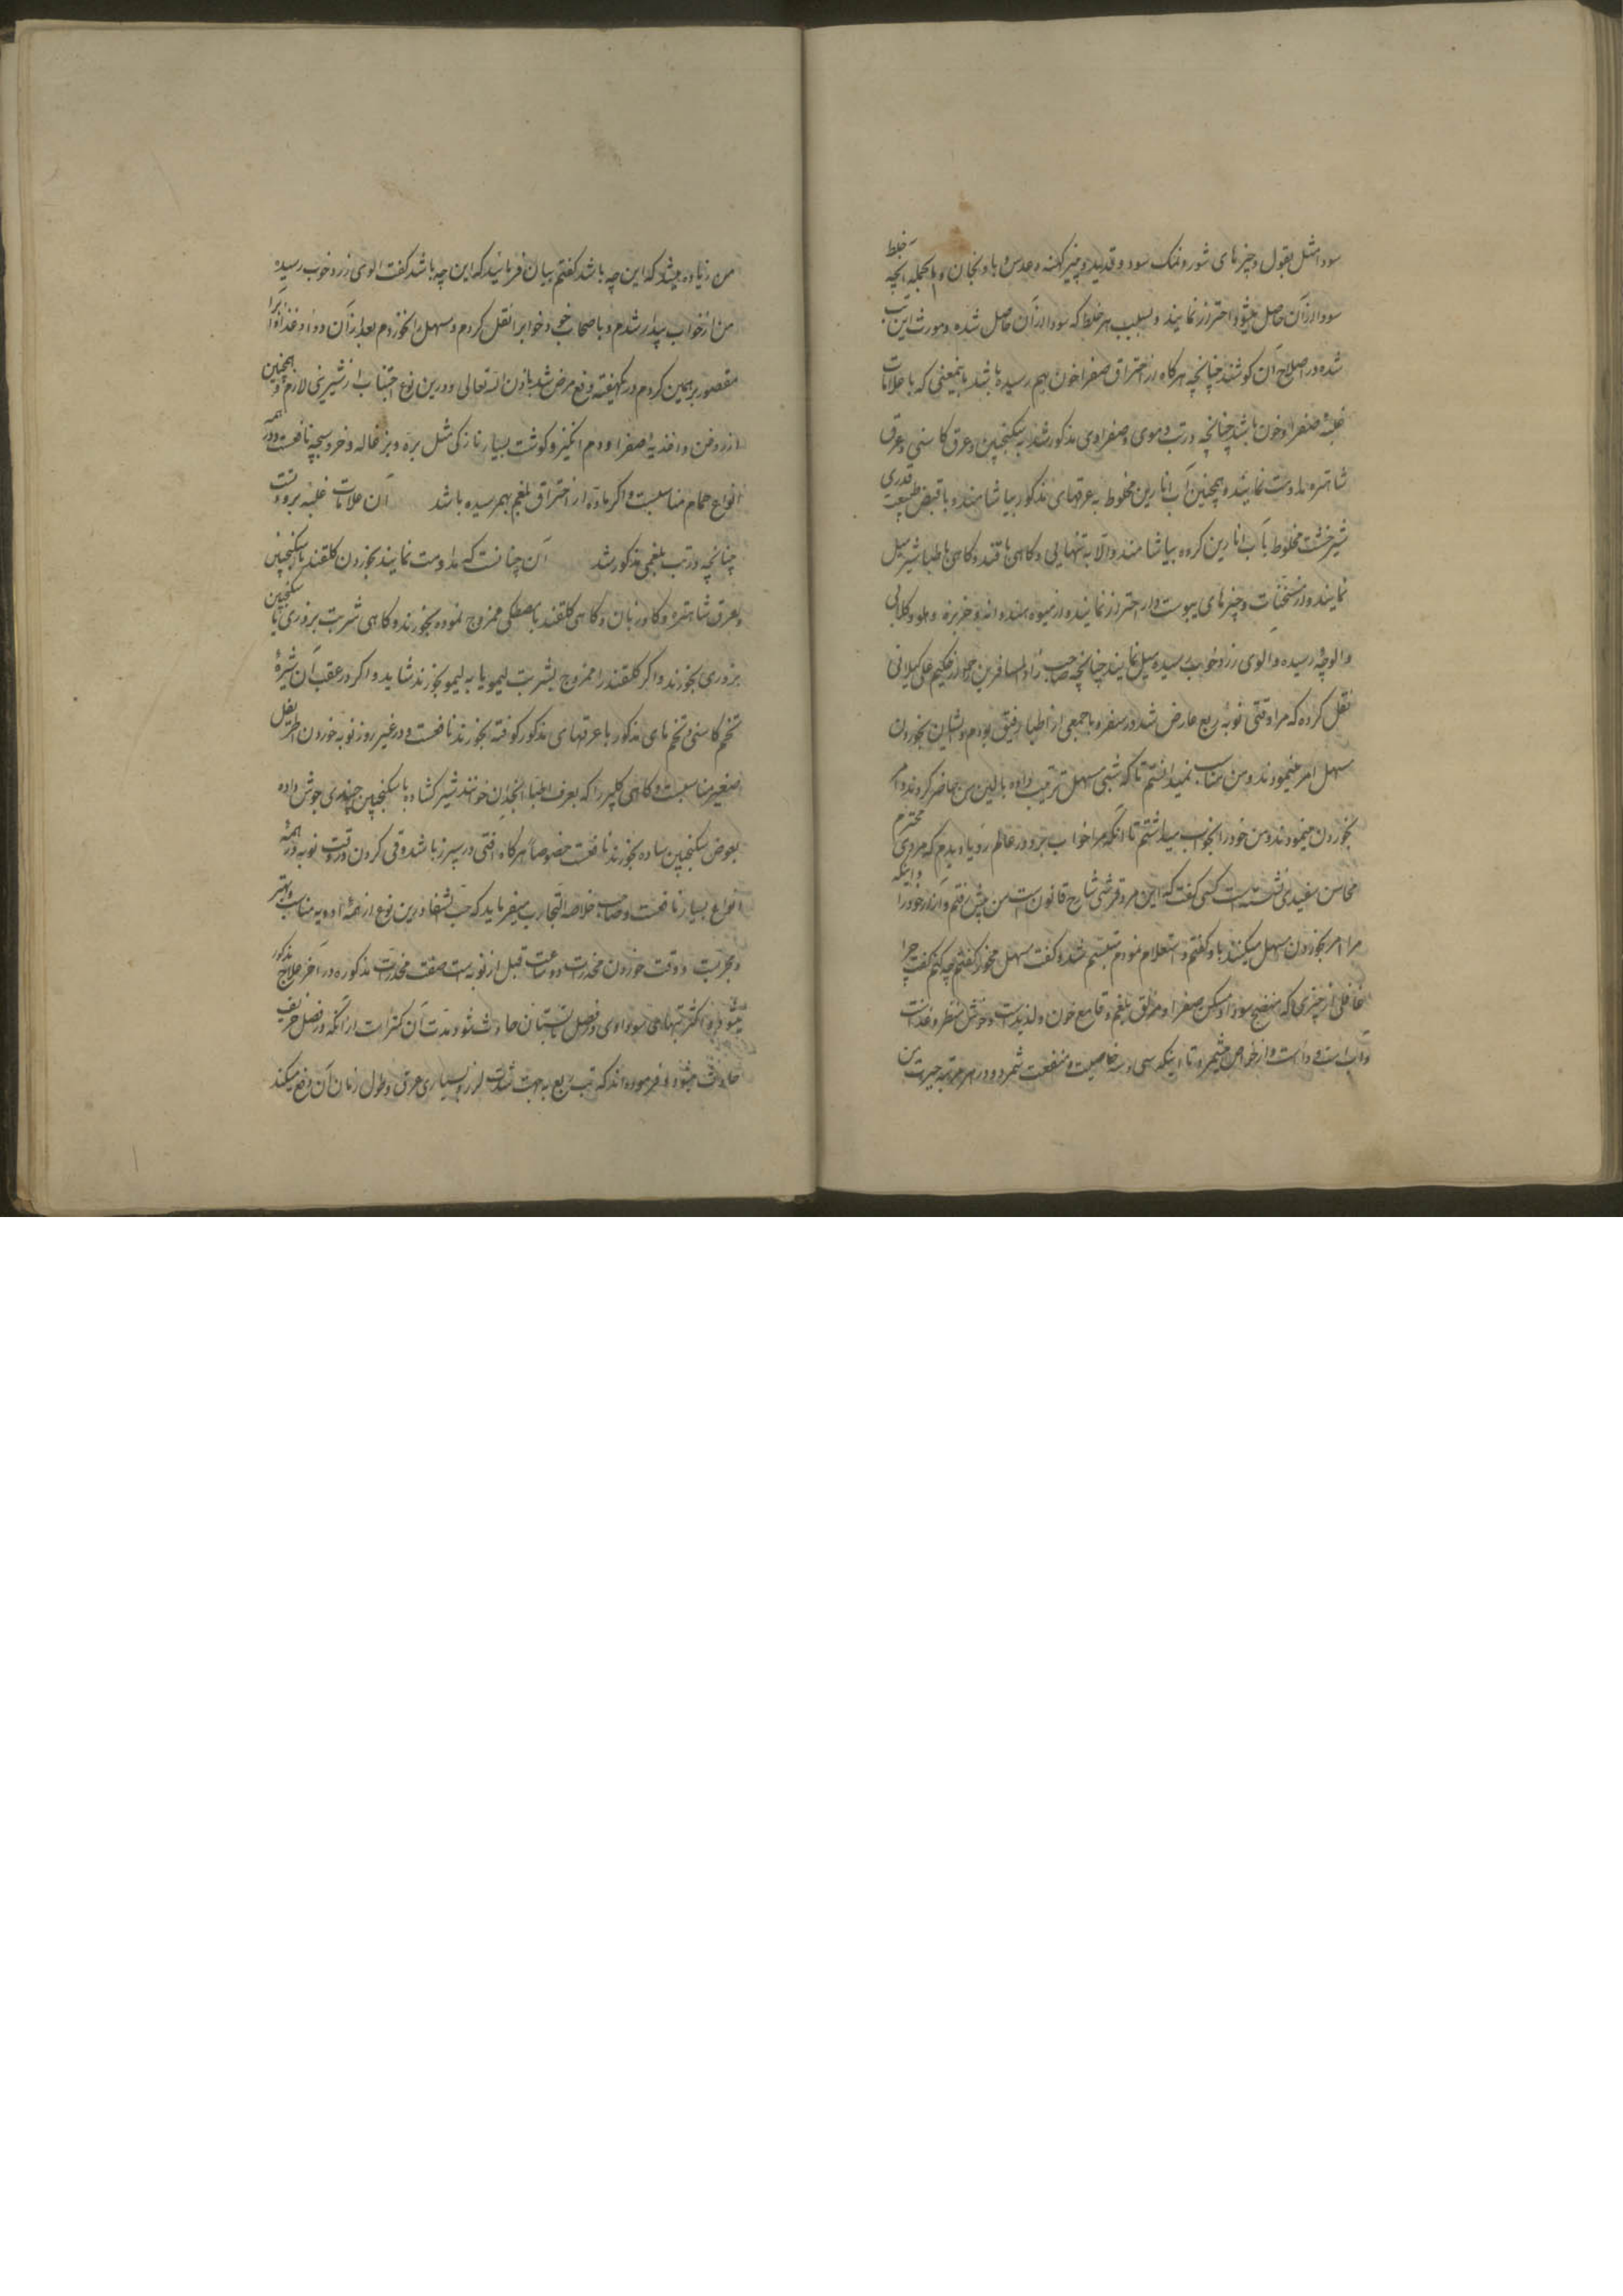 سودا مثل بقول و چیزهای شور و نمک سود و قدید و پنیر کهنه و عدس و بادنجان و بالجمله آنچه خلط
سودا از آن حاصل میشود احتراز نمایند و بسبب هر خلط که سودا از آن حاصل شده و مورث این تب
شده در اصلاح آن کوشند چنانچه هرکاه از احتراق صفرا خون بهم رسیده باشد بایمعنی که با علامات
غلبهٔ صفرا و خون باشد چنانچه در تب دموی و صفراوی مذکور شد به سکنجبین و عرق کاسنی و عرق
شاهتره مداومت نمایند و همچنین آب انارین مخلوط به عرقهای مذکور بیاشامند و با قبض طبیعت قدری
شیرخشت مخلوط با آب انارین کرده بیاشامند و الا به تنهایی و کاهی با قند و کاهی با طباشیر میل
نمایند و از مسخنات و چیزهای یبوست دار احتراز نمایند و از میوه هندوانه و خربزه و هلو و کلابی
و الوچهٔ رسیده و الوی زرد خوب رسیده میل نمایند چنانچه صاحب زاد المسافرین از حکیم علی کیلانی
نقل کرده که مرا وقتی نوبهٔ ربع عارض شد در سفر و با جمعی از اطبا رفیق بودم و ایشان بخوردن
مسهل امر مینمودند و من مناسب نمیدانستم تا که شبی مسهل ترتیب داده بالین من حاضر کردند و امر
بخوردن مینمودند و من خود را بخواب میداشتم تا آنکه مرا خواب برد و در عالم رویا دیدم که مردی محترم
محاسن سفیدی نشسته است کسی گفت که این مرد قرشی شارح قانون است من پیش رفتم و آزار خود را و اینکه
مرا امر بخوردن مسهل میکنند باو گفتم و استعلام نمودم متبسم شد و گفت مسهل مخور گفتم چه کنم گفت چرا
غافلی از چیزی که منضج سودا و مسکن صفرا و مزلق بلغم و قامع خون و لذیذ است و خوش منظر و غذاست
و آب است و دواست و از خواص میشمرد تا اینکه سی و سه خاصیت و منفعت شمرد و در هر مرتبه حیرت من
من زیاده میشد که این چه باشد گفتم بیان فرمائید که این چه باشد گفت الوی زرد خوب رسیده
من از خواب بیدار شدم و باصحاب خود خواب را نقل کردم و مسهل را نخوردم بعد از آن دوا و غذا را
مقصور بر همین کردم در یکهفته رفع مرض شد باذن الله تعالی و درین نوع اجتناب از شیرینی لازم و همچنین
از روغن و اغذیهٔ صفرا و دم انگیز و کوشت بسیار نازکی مثل بره و بزغاله و خروسبچه نافعست و در همه
انواع حمام مناسبست و اکر ماده از احتراق بلغم بهمرسیده باشد آن علامات غلبه برودتست
چنانچه در تب بلغمی مذکور شد آن چنانست که مداومت نمایند بخوردن کلقند با سکنجبین
و بعرق شاهتره و کاوزبان و کاهی کلقند با مصطکی ممزوج نموده بخورند و کاهی شربت بزوری یا سکنجبین
بزوری بخورند و اکر کلقند را ممزوج بشربت لیمو یا به لیمو بخورند شاید و اکر در عقب آن شیرهٔ
تخم کاسنی و تخم های مذکور با عرقهای مذکور کوفته بخورند نافعست و در غیر روز نوبه خوردن اطریفل
صغیر مناسبست و کاهی کلپر را که بعرف اطبا انجدن خوانند شیر کشاده با سکنجبین چغندری جوش داده
بعوض سکنجبین ساده بخورند نافعست خصوصاً هرکاه آفتی در سپرز باشد و قی کردن در وقت نوبه در همهٔ
انواع بسیار نافعست و صاحب خلاصة التجارب میفرماید که حب الشفا درین نوع از همهٔ ادویه مناسب و بهتر
و مجربست و وقت خوردن مخدرات دو ساعت قبل از نوبه است صفت مخدرات مذکوره در آخر علاج مذکور
میشود و اکثر تبهای سوداوی در فصل تابستان حادث شود و مدت آن کمتر است از آنکه در فصل خریف
حادث میشود و فرموده اند که تب ربع به جهت شدت لرز و بسیاری عرق و طول زمان آن دفع میکند